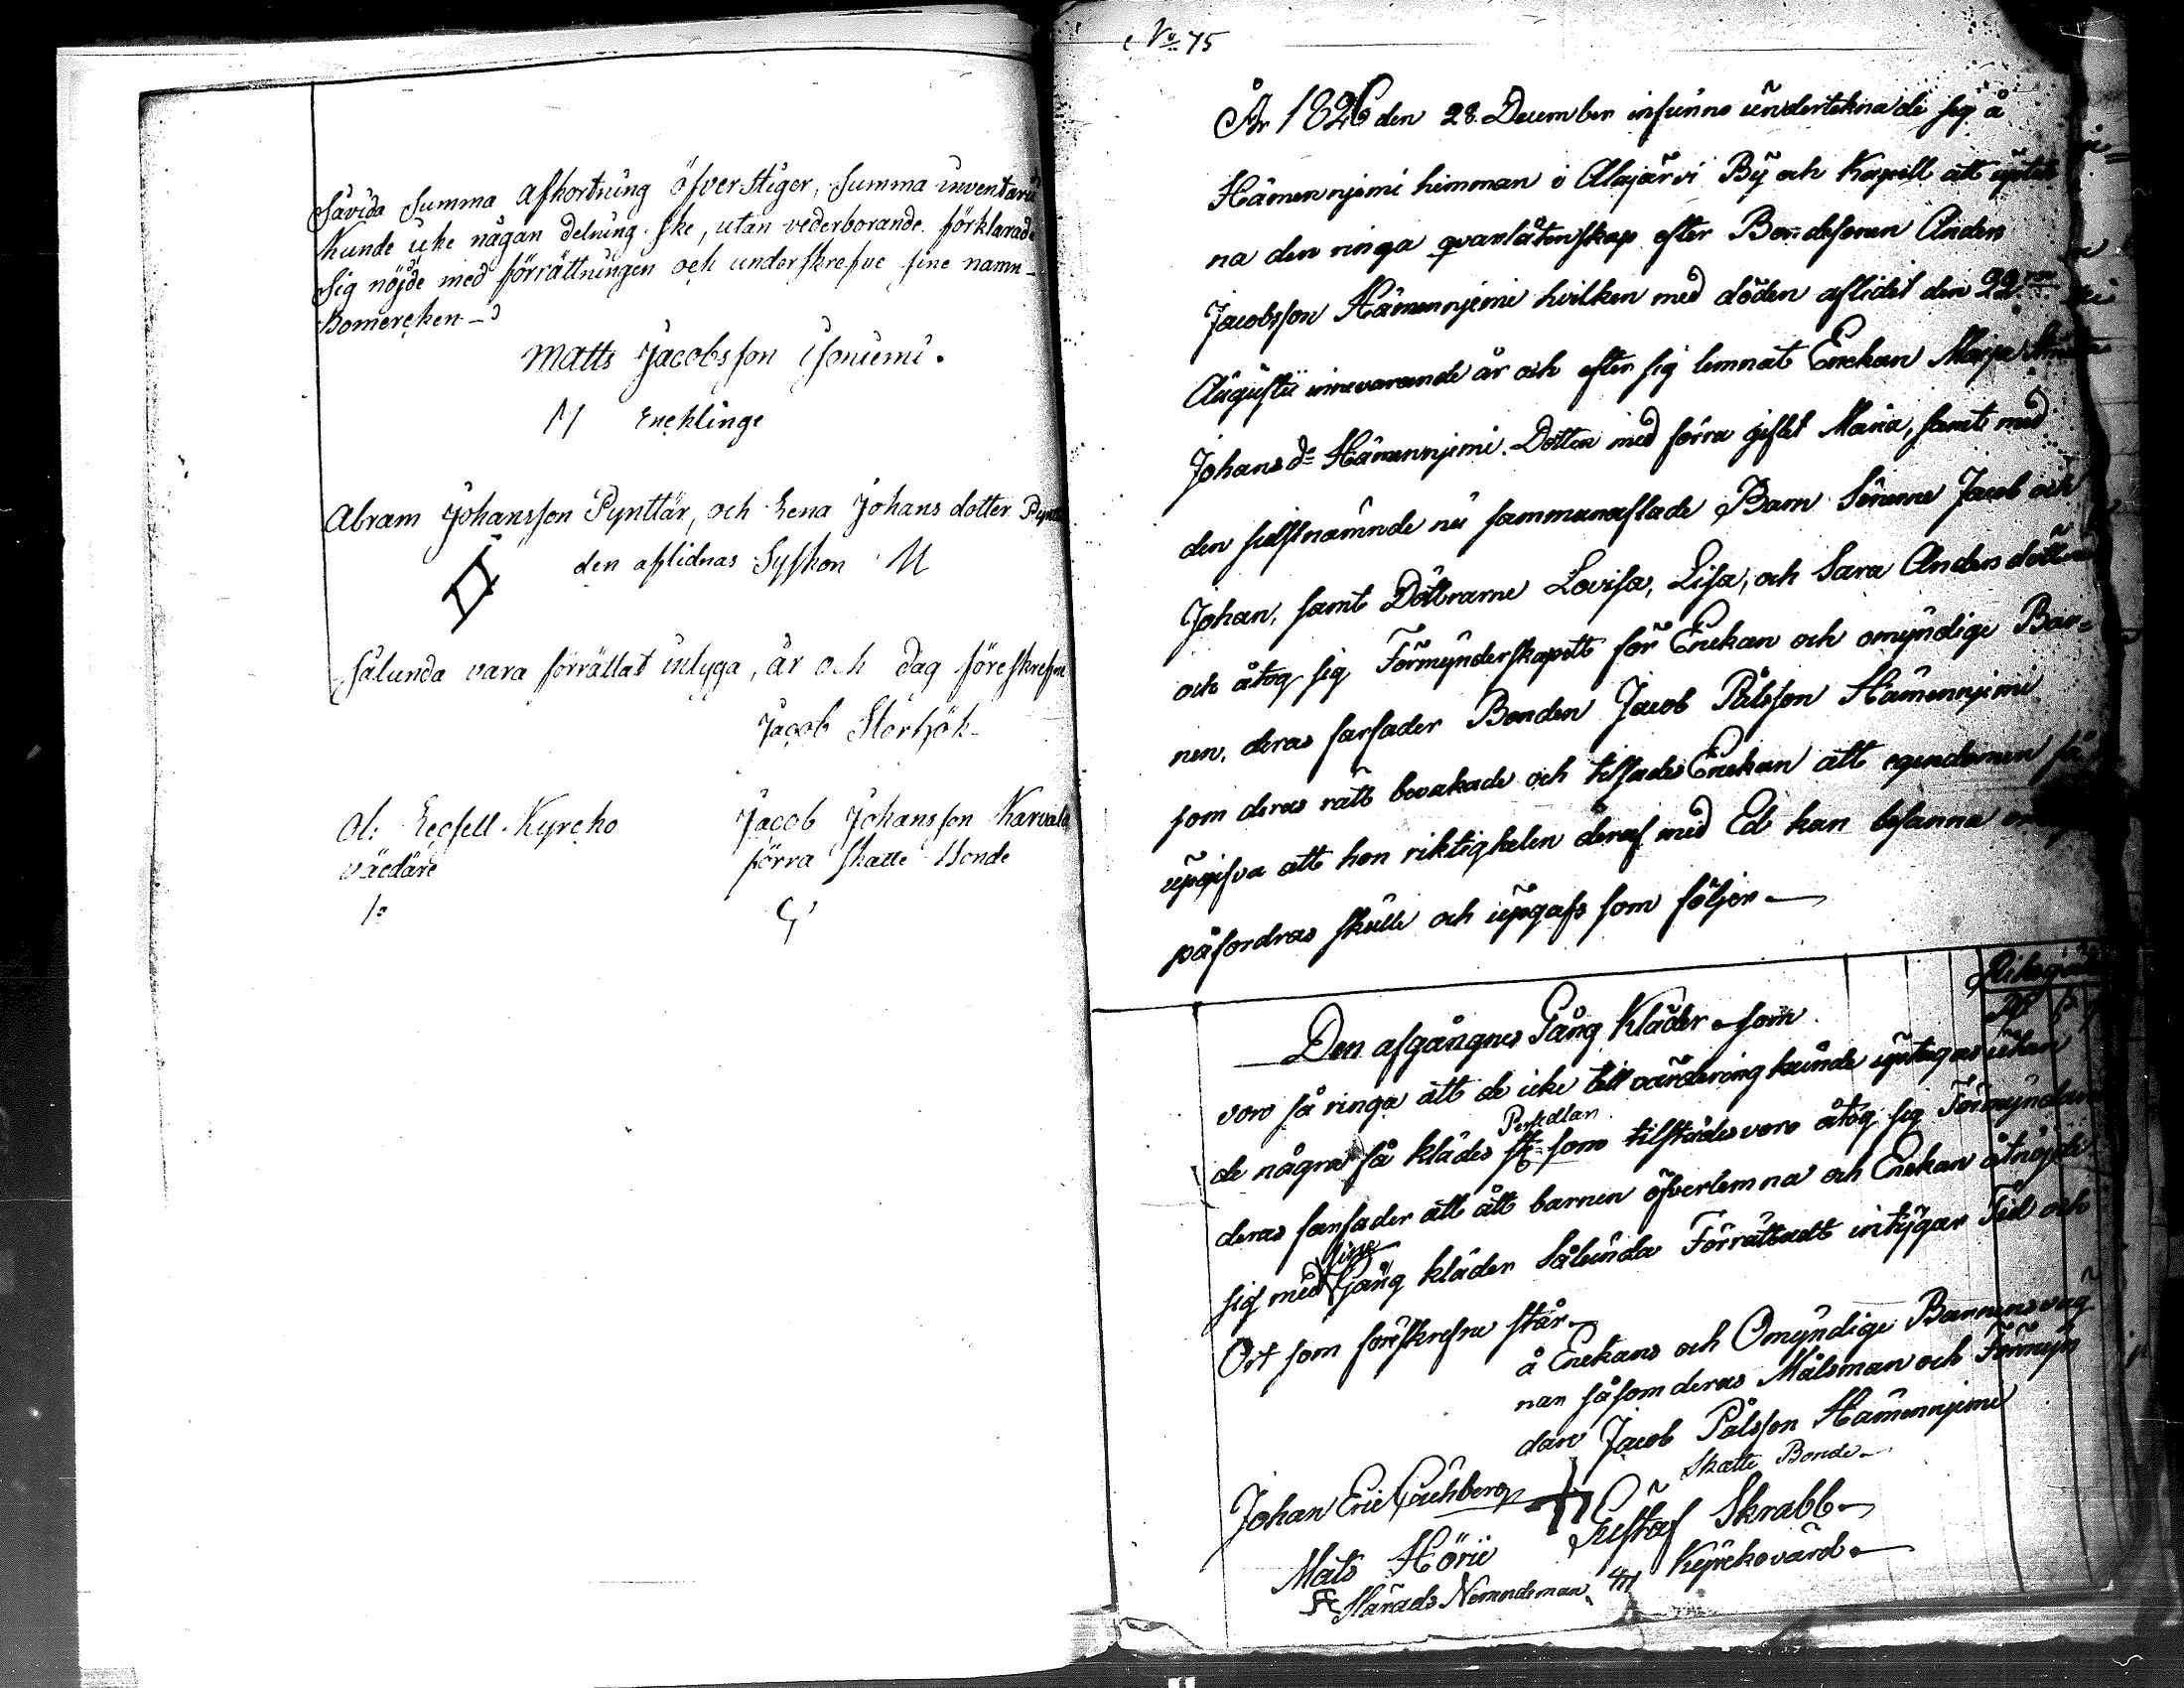 Såvida Summa afkortning öfverstiger, Summa inventarii
Kunde icke någan delning ske, utan vederborande förklarade
Sig nöjde med förrättningen och underskrefve sine namn-
Bomercken-
Matts Jacobsson Isoniemi.
M Encklinge
Abram Johansson Pynttär, och Lena Johans dotter
den aflidnas Syskon M
Sålunda vara förrättat intyga, år och dagföreskrefne
Jacob
Kyrcko Jacob Johansson
väcdäre förra Skatte Bonde
No 75
År 1826 den 28 December infunno underteknade sig å
Hämennjemi hemman i Alajärvi By och Kapell att upteck
na den ringa qvarlåtenskap efter Bondesonen Anders
Jacobsson Hämennjemi hvilken med döden aflidit den 22
Augustii innevarande år och efter sig lemnat Enckan Maja
Johansdr Hämennjemi. Dotten med förra giftet Maria, samt med
den sidstnämnde nu sammanaflade Barn Sönerne Jacob och
Johan, samt Döttrarne Lovisa, Lisa, och Sara Anders döttrar
och åtog sig Förmynderskapett för Enckan och omyndige Bar=
nen, deras farfader Bonden Jacob Pålsson Hämennjemi
som deras rätt bevakade och tilsades Enckan att egendomen så
upgifva att hon riktigheten deraf med Ed kan besanna om
påfordras skulle och upgafs som följer
Riksgäld
Rd s
Den afgångnes Gång Kläder som
voro så ringa att de icke till värdering kunde uptagas utan
Persedlar
de några få klädes st som tilstädes voro åtog sig Förmyndaren
deras farfader att ått barnen öfverlemna och Enckan åtnöjde
sine
sig med Gång kläder Sålunda Förrättadt intygar Tid och
Ort som förskrefne står
å Enckans och Omyndige Barnens väg
nar såsom deras Målsman och Förmyn
dare Jacob Pålsson Hämennjemi
Skatte Bonde
Johan Eric
Mats Hörie Gustaf Skrabb
Härads Nämndeman Kyrckovärd